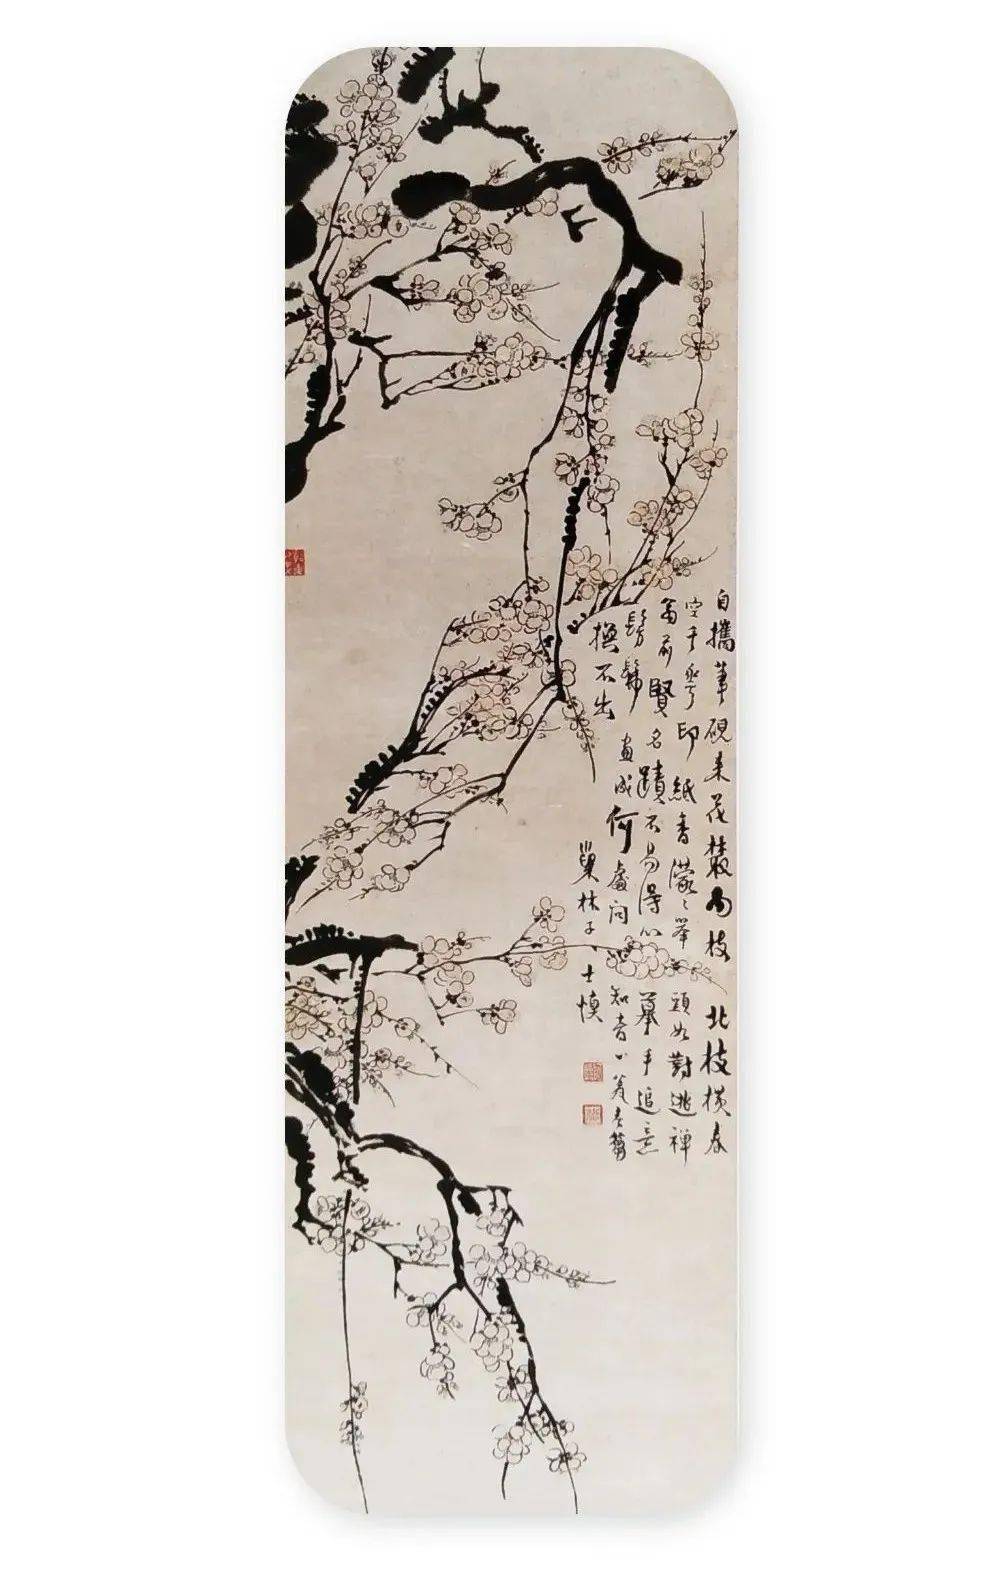 自攜筆硯来花叢南枝北枝橫春
空千乎印紙香濛〻举頭如對逃禪
翁前賢名蹟不易得心摹手追意
髣髴畫成何處问知音
摸不出
巢林子士慎